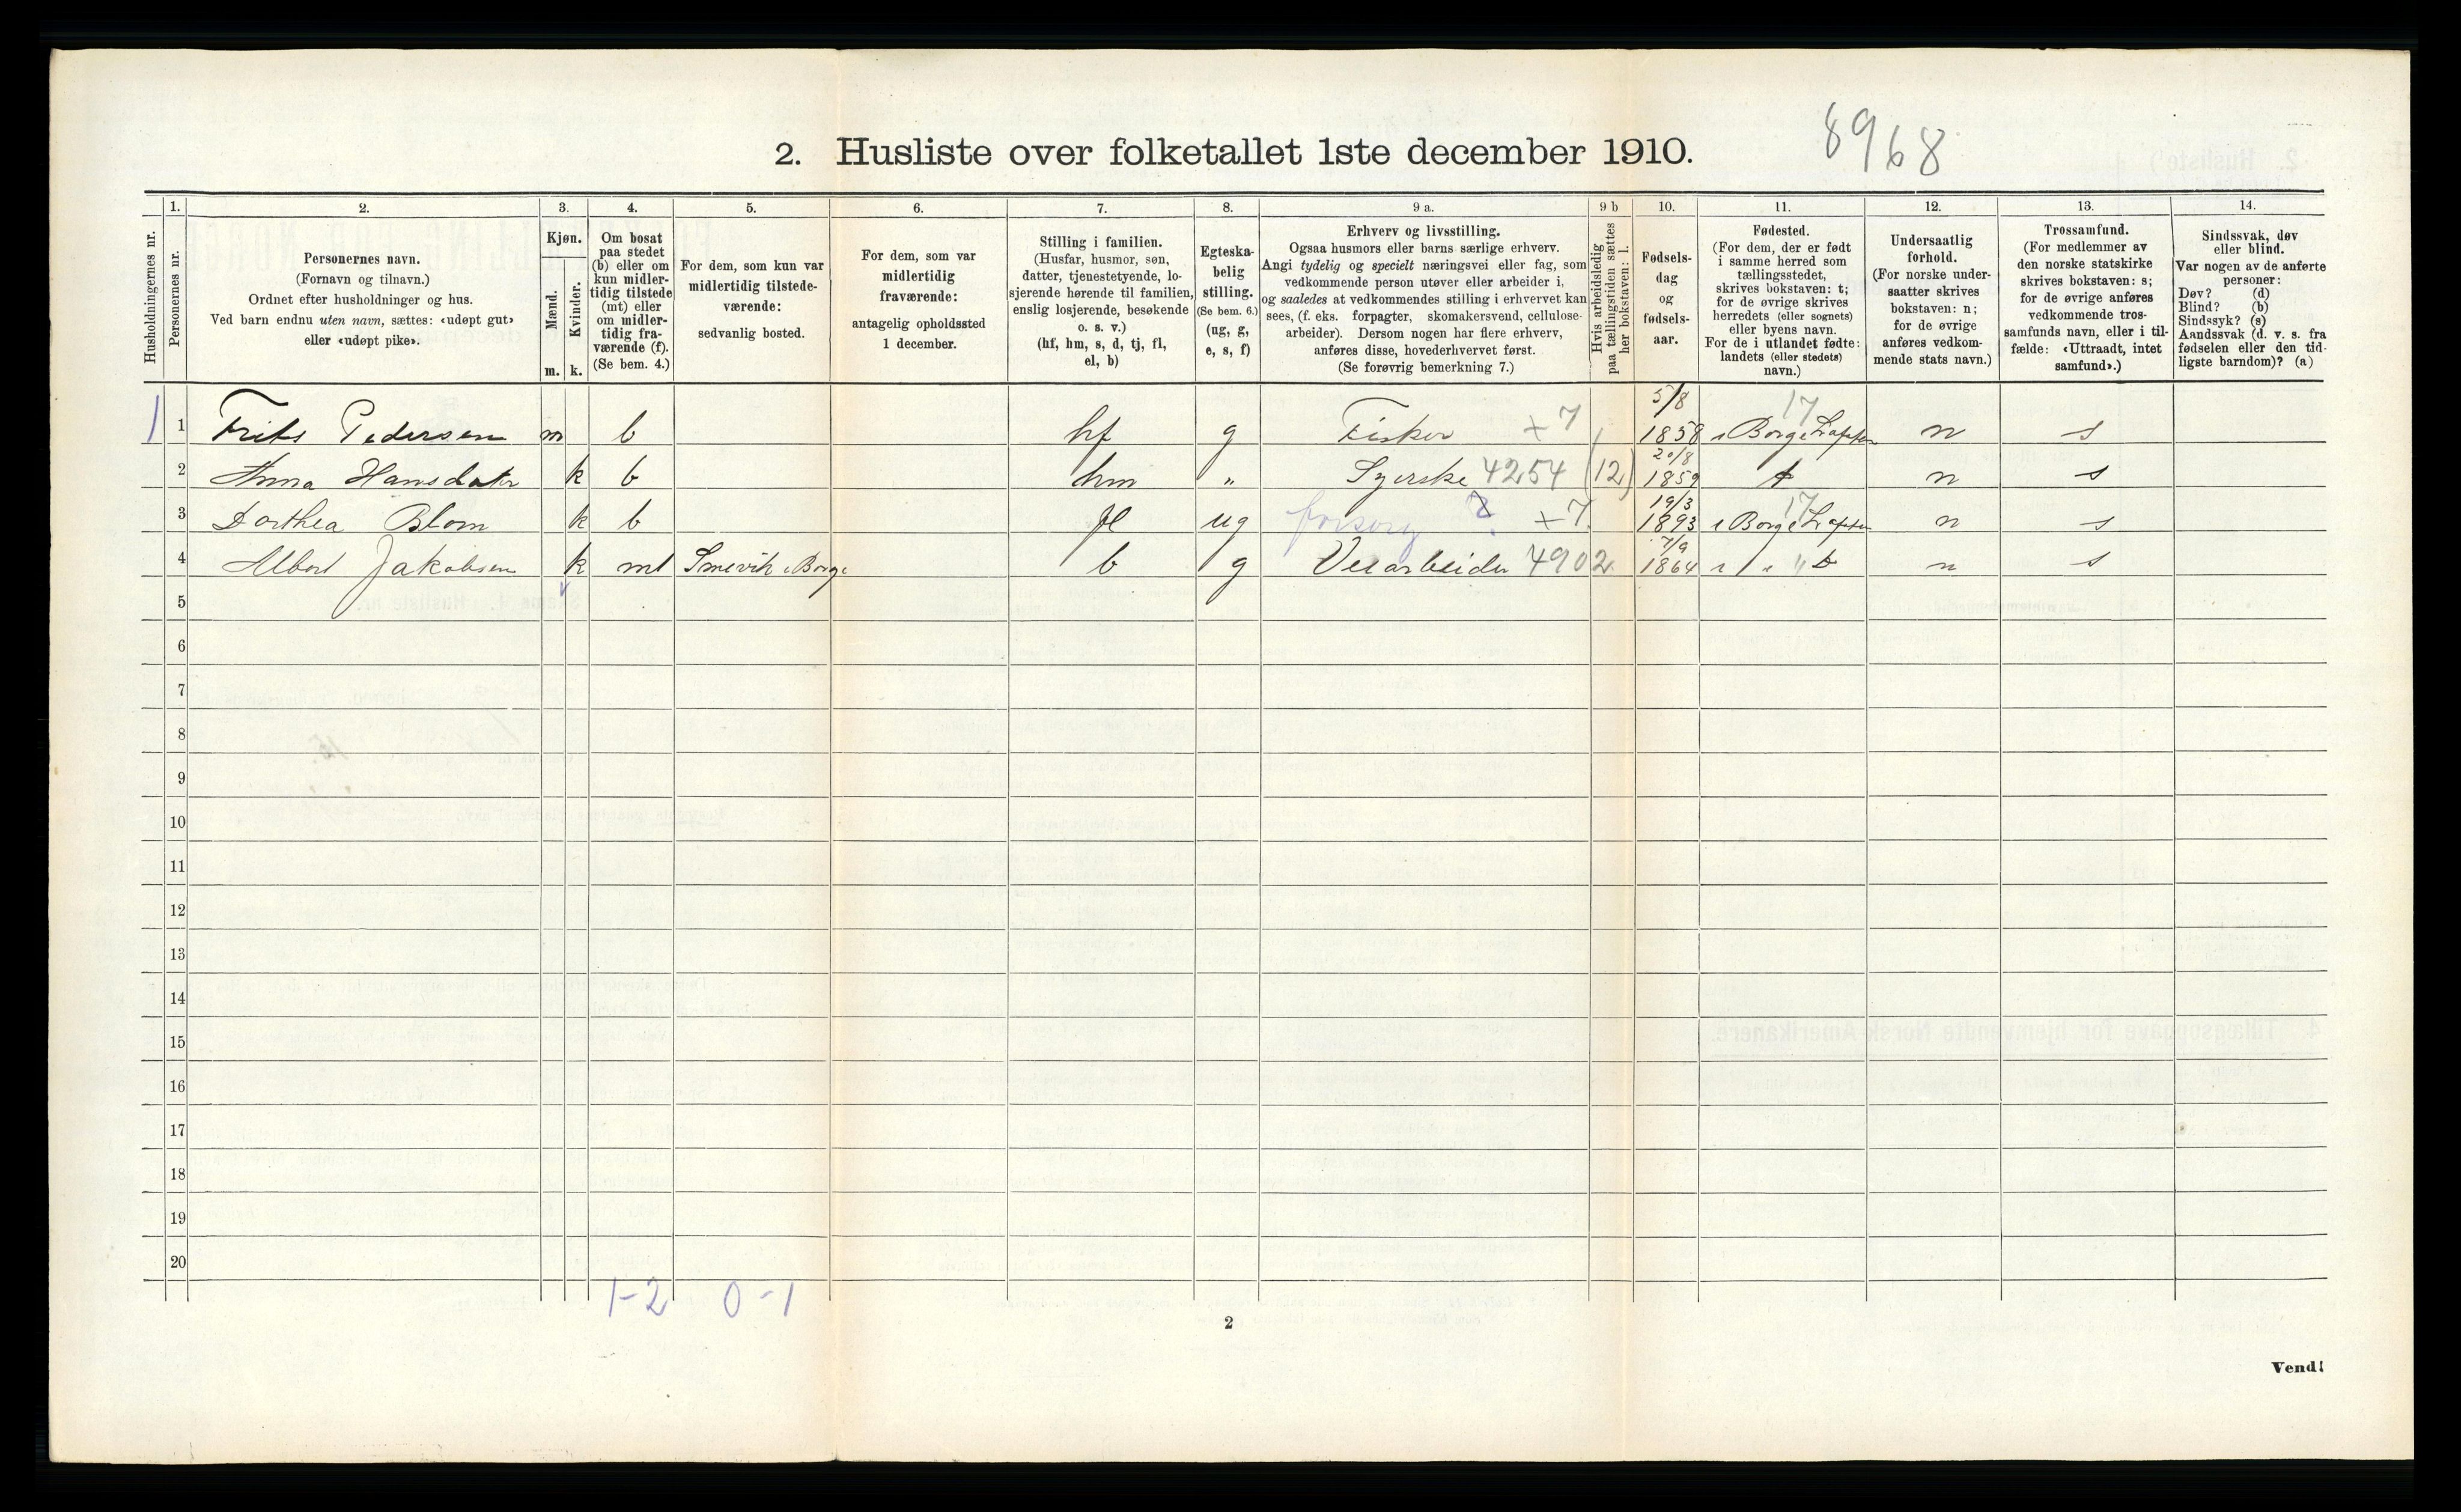 2. Husliste over folketallet 1ste december 1910. 8968
1. 2. 3. 4. 5. 6. 7. 8. 9 a. 9 b 10. 11. 12. 13. 14.
Husholdningernes nr.
Personernes nr.
Personernes navn.
(Fornavn og tilnavn.)
Ordnet efter husholdninger og hus.
Ved barn endnu uten navn, sættes: «udøpt gut»
eller «udøpt pike».
Kjøn.
Mænd.
Kvinder.
m. k.
Om bosat
paa stedet
(b) eller om
kun midler-
tidig tilstede
(mt) eller
om midler-
tidig fra-
værende (f).
(Se bem. 4.)
For dem, som kun var
midlertidig tilstede-
værende:
sedvanlig bosted.
For dem, som var
midlertidig
fraværende:
antagelig opholdssted
1 december.
Stilling i familien.
(Husfar, husmor, søn,
datter, tjenestetyende, lo-
sjerende hørende til familien,
enslig losjerende, besøkende
o. s. v.)
(hf, hm, s, d, tj, fl,
el, b)
Egteska-
belig
stilling.
(Se bem. 6.)
(ug, g,
e, s, f)
Erhverv og livsstilling.
Ogsaa husmors eller barns særlige erhverv.
Angi tydelig og specielt næringsvei eller fag, som
vedkommende person utøver eller arbeider i,
og saaledes at vedkommendes stilling i erhvervet kan
sees, (f. eks. forpagter, skomakersvend, cellulose-
arbeider). Dersom nogen har flere erhverv,
anføres disse, hovederhvervet først.
(Se forøvrig bemerkning 7.)
Hvis arbeidsledig
paa tællingstiden sættes
her bokstaven: l.
Fødsels-
dag
og
fødsels-
aar.
Fødested.
(For dem, der er født
i samme herred som
tællingsstedet,
skrives bokstaven: t;
for de øvrige skrives
herredets (eller sognets)
eller byens navn.
For de i utlandet fødte:
landets (eller stedets)
navn.)
Undersaatlig
forhold.
(For norske under-
saatter skrives
bokstaven: n;
for de øvrige
anføres vedkom-
mende stats navn.)
Trossamfund.
(For medlemmer av
den norske statskirke
skrives bokstaven: s;
for de øvrige anføres
vedkommende tros-
samfunds navn, eller i til-
fælde: «Uttraadt, intet
samfund».)
Sindssvak, døv
eller blind.
Var nogen av de anførte
personer:
Døv? (d)
Blind? (b)
Sindssyk? (s)
Aandssvak (d. v. s. fra
fødselen eller den tid-
ligste barndom)? (a)
5/8 17
1 1 Frits Pedersen m b hf g Fisker x7 1858 Borge
20/8
2 Anna Hansdater k b hm „ Syerske 4254 (12) 1859 t n s
19/3 17
3 Dorthea Blom k b fl ug forsørg x7 1893 Borge n s
7/9
4 Albert Jakobsen k mt Smevik i Borge b g Veiarbeider 4902 1864 n s
5
6
7
8
9
10
11
12
13
14
15
16
17
18
19
20
1-2 0-1
2
Vend!